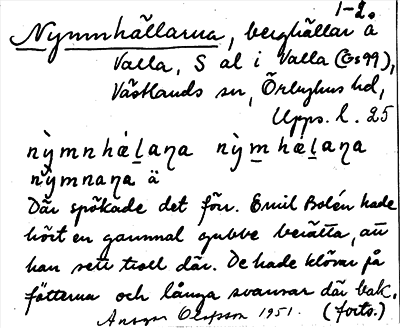 1-2.
Nymnhällarna, berghällar å
Valla, S al i Valla (Gs 99),
Västlands sn, Örbyhus hd,
Upps. l. 25
nỳmnhæḷaṇa nỳm̲hæḷaṇa
nỳmnaṇa ä
Där spökade det förr. Emil Bolén hade
hört en gammal gubbe berätta, att
han sett troll där. De hade klövar på
fötterna och långa svansar där bak.
Olsson 1951. (forts.)